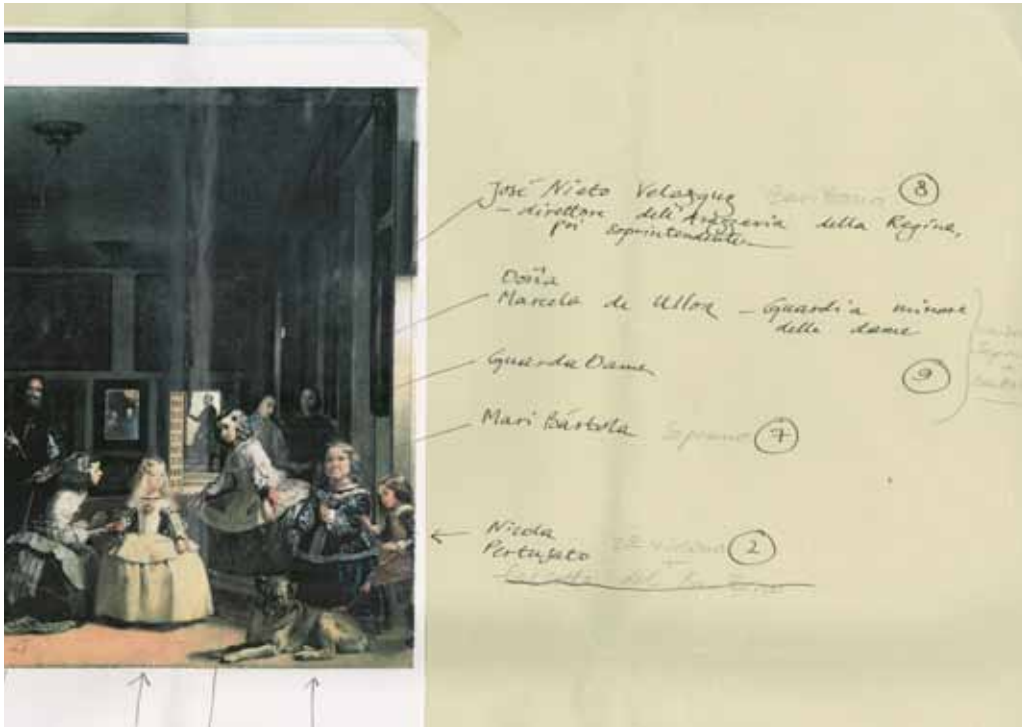 José Nieto Velazquez Baritono 8
– direttore dell'Arazzeria della Regina,
poi soprintendente
Doña
Marcela de Ulloa – Guardia minore
delle dame
Guarda Dame 9
Mari Bárbola Soprano 7
Nicola
Pertusato 2